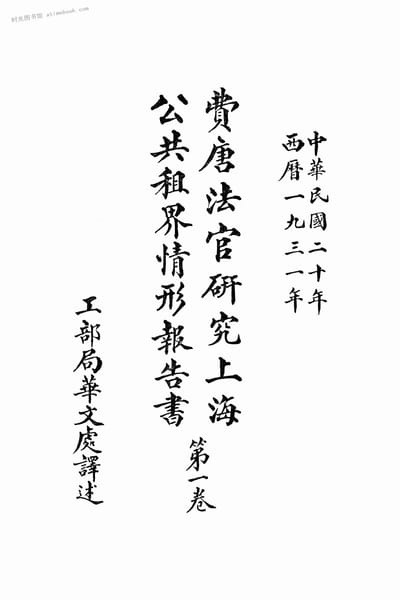 时光图书馆 atimebook.com
中華民國二十年
西曆一九三一年
費唐法官研究上海
公共租界情形報告書
第一卷
工部局華文處譯述